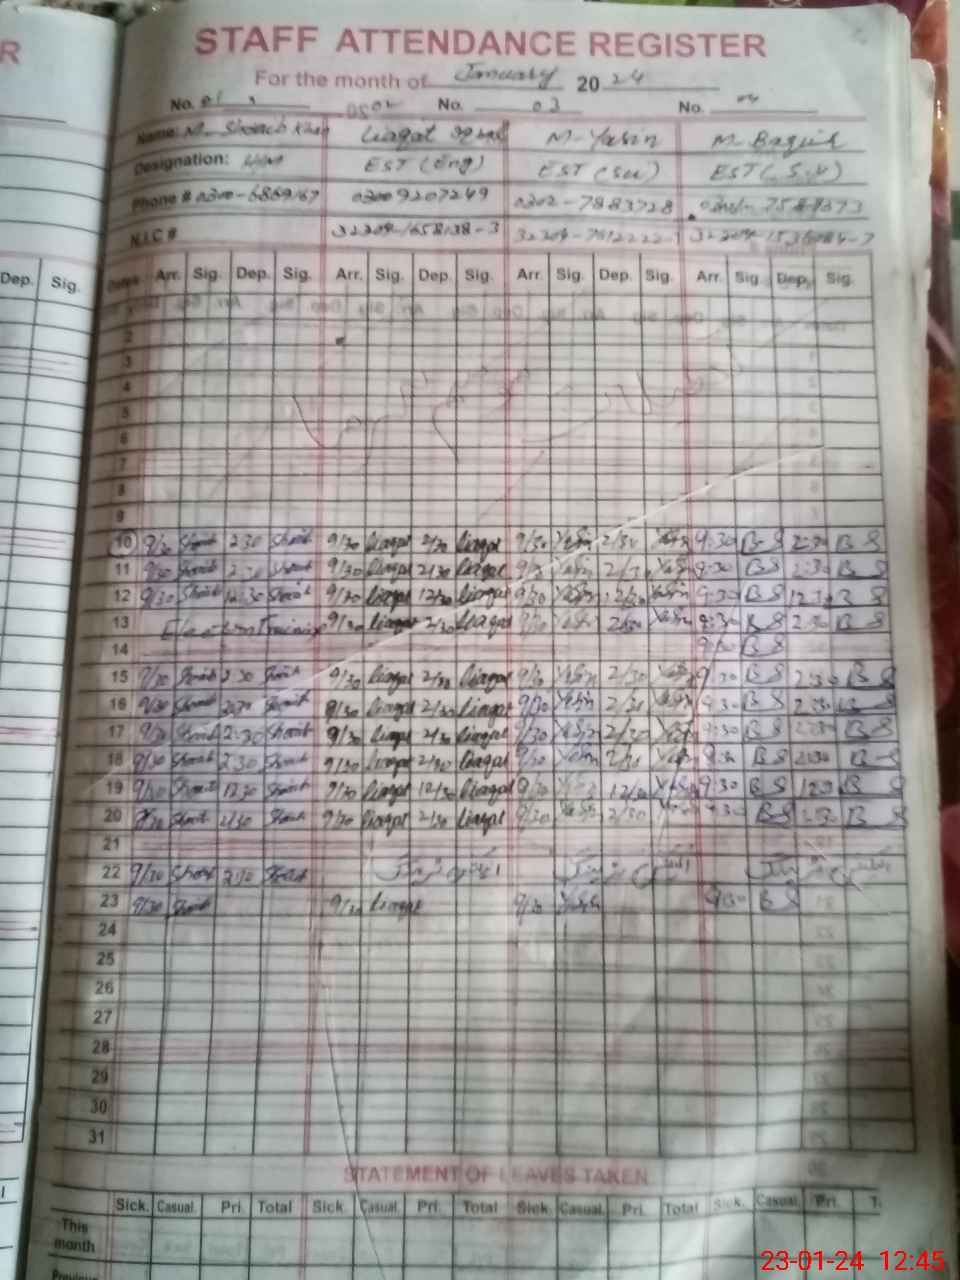 STAFF ATTENDANCE REGISTER
For the month of January 20 24
No. 01 02 No. 03 No. 04
Name: M. Shoaib Khan Liaqat M-Yasin M. Baqir
Designation: EST (Eng) EST
Phone # 03009207249 0302-7883728
N.I.C #
Dep. Sig. Dates Arr. Sig. Dep. Sig. Arr. Sig. Dep. Sig. Arr. Sig. Dep. Sig. Arr. Sig. Dep. Sig.
1
2
3
4
5
6
7
8
9
10 9/30 Shoaib 2:30 Shoaib 9/30 Liaqat 2/30 Liaqat 9/30 Yasin 2/30 Yasin 9:30 B S 2:30 B S
11 9/30 Shoaib 2:30 Shoaib 9/30 Liaqat 2/30 Liaqat 9/30 Yasin 2/30 Yasin 9:30 B S 2:30 B S
12 9/30 Shoaib 12:30 Shoaib 9/30 Liaqat 12/30 Liaqat 9/30 Yasin 12/30 Yasin 9:30 B S 12:30 B S
13 Election Training 9/30 Liaqat 2/30 Liaqat 9/30 Yasin 2/30 Yasin 9:30 B S 2:30 B S
14 9:30 B S
15 9/30 Shoaib 2:30 Shoaib 9/30 Liaqat 2/30 Liaqat 9/30 Yasin 2/30 Yasin 9:30 B S 2:30 B S
16 9/30 Shoaib 2:30 Shoaib 9/30 Liaqat 2/30 Liaqat 9/30 Yasin 2/30 Yasin 9:30 B S 2:30 B S
17 9/30 Shoaib 2:30 Shoaib 9/30 Liaqat 2/30 Liaqat 9/30 Yasin 2/30 Yasin 9:30 B S 2:30 B S
18 9/30 Shoaib 2:30 Shoaib 9/30 Liaqat 2/30 Liaqat 9/30 Yasin 2/30 Yasin 9:30 B S 2:30 B S
19 9/30 Shoaib 12:30 Shoaib 9/30 Liaqat 12/30 Liaqat 9/30 Yasin 12/30 Yasin 9:30 B S B S
20 9/30 Shoaib 2/30 Shoaib 9/30 Liaqat 2/30 Liaqat 9/30 Yasin 2/30 Yasin 9:30 B S 2:30 B S
21
22 9/30 Shoaib 2:30 Shoaib الیکشن ٹریننگ الیکشن ٹریننگ الیکشن ٹریننگ
23 9/30 Shoaib 9/30 Liaqat 9/30 Yasin 9:30 B S
24
25
26
27
28
29
30
31
STATEMENT OF LEAVES TAKEN
Sick. Casual. Pri. Total Sick. Casual. Pri. Total Sick. Casual. Pri. Total Sick. Casual. Pri.
This
month
23-01-24 12:45